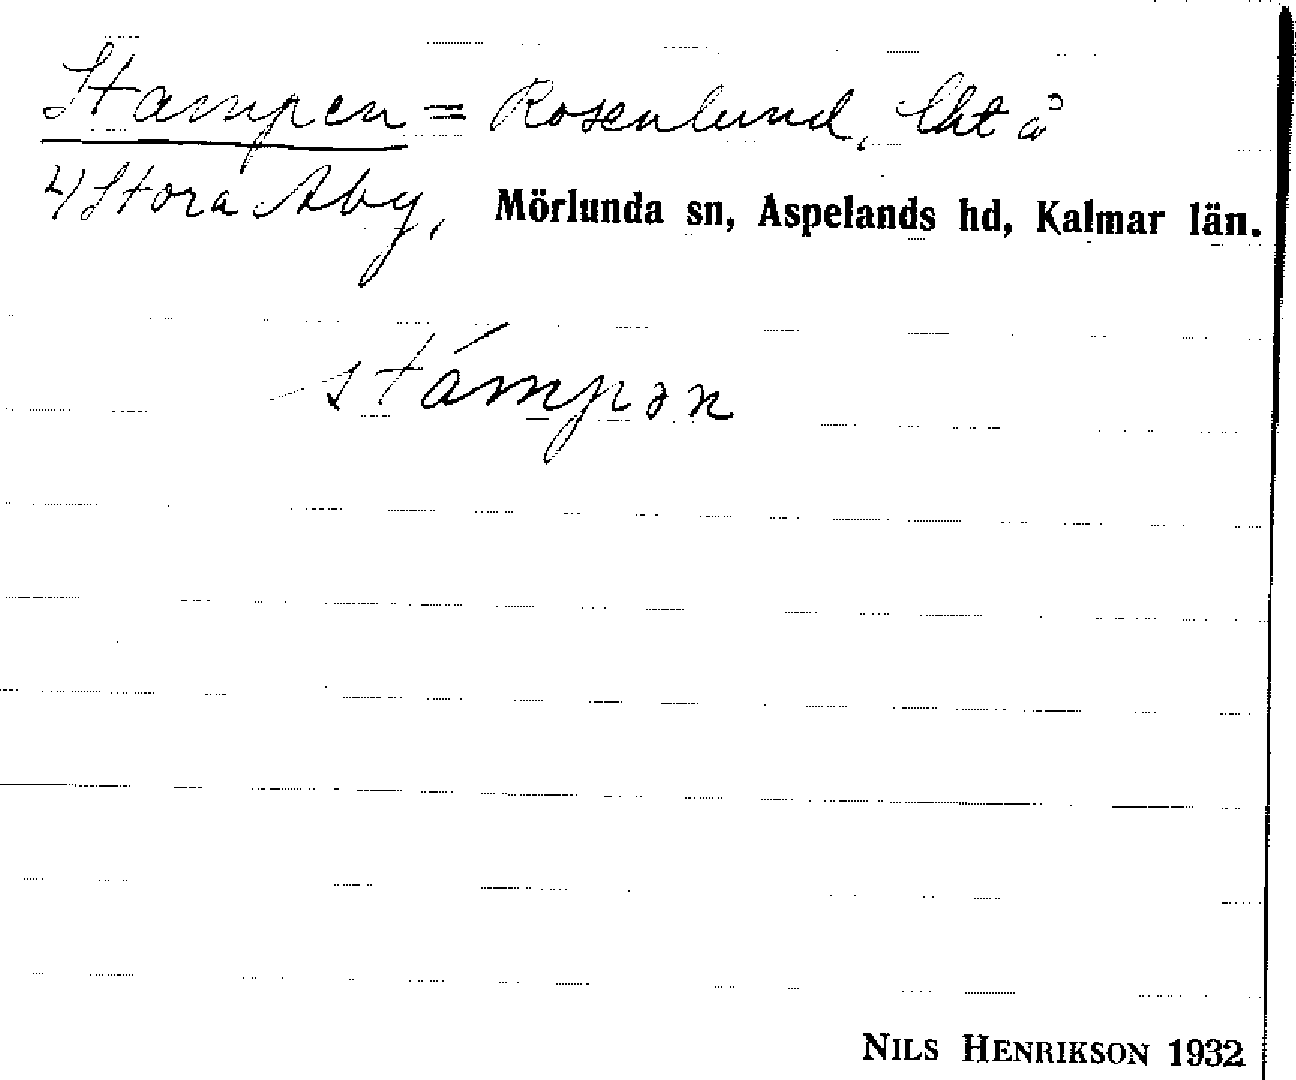 Stampen = Rosenlund, lht å
4/ Stora Aby, Mörlunda sn, Aspelands hd, Kalmar län.
stámpən
NILS HENRIKSON 1932